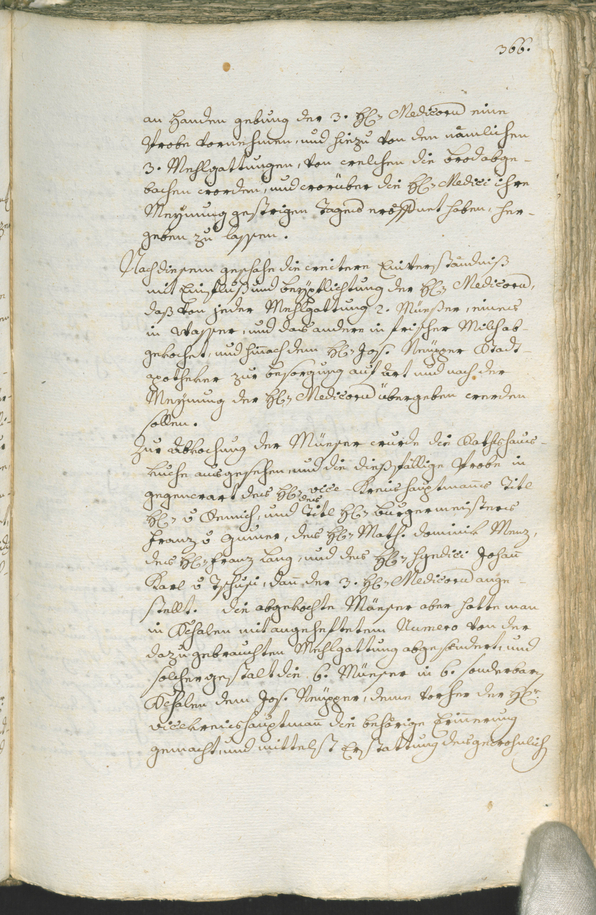 366.
an Handen gebung der 3. H: Medicorum eine
Probe vornehmen, und hiezu von den nämlichen
3. Mehlgattungen, von welchen die brod abge-
bachen worden, und worüber die H: Medici ihre
Meynung gestrigen Tages eröffnet haben, her-
geben zu lassen.
Nach diesem geschahe die weitere Einverständniß
mit Einfluß und beypflichtung der H: Medicorum,
daß von jeder Mehlgattung 2. Mueser, eines
in Wasser, und das andere in frischer Milch ab-
gekochet, und hinach dem H: Jos. Neupper Stadt-
apotheker zur besorgung auf Art und nach der
Meynung der H: Medicorum übergeben werden
sollen.
Zur Abkochung der Mueser wurde die Rathshaus-
kuche ausgesehen, und die dießfällige Probe in
gegenwart des H: vice-Kreishauptmanns Titl
H: v. , und Titl H: des Burgermeisters
Franz v. Gumer, des H: Math: Dominik Menz,
des H: Franz Lang, und des H: Syndici Johann
Karl v. Tschusi, dann der 3. H: Medicorum ange-
stellt. Die abgekochte Mueser aber hatte man
in Schalen mit angeheftetem Numero von der
dazu gebrauchten Mehlgattung abgesöndert, und
solchergestalt die 6. Mueser in 6. sonderbar
Schalen dem Jos. Neupper, deme vorher der H:
vicekreishauptmann die behörige Erinnerung
gemacht, und mittelst Erstattung des gewohnlich